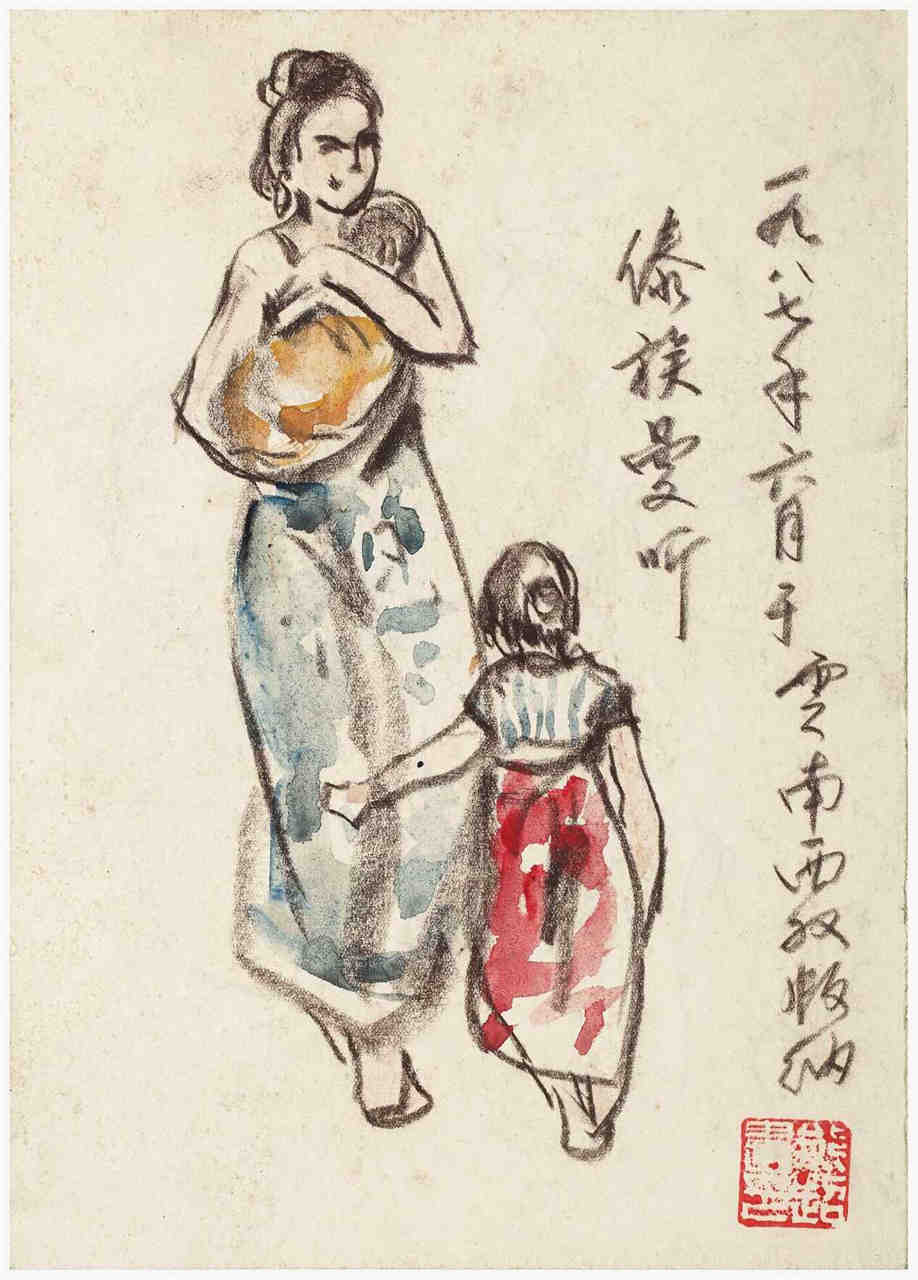 一九八七年六月于雲南西双版纳
傣族曼听